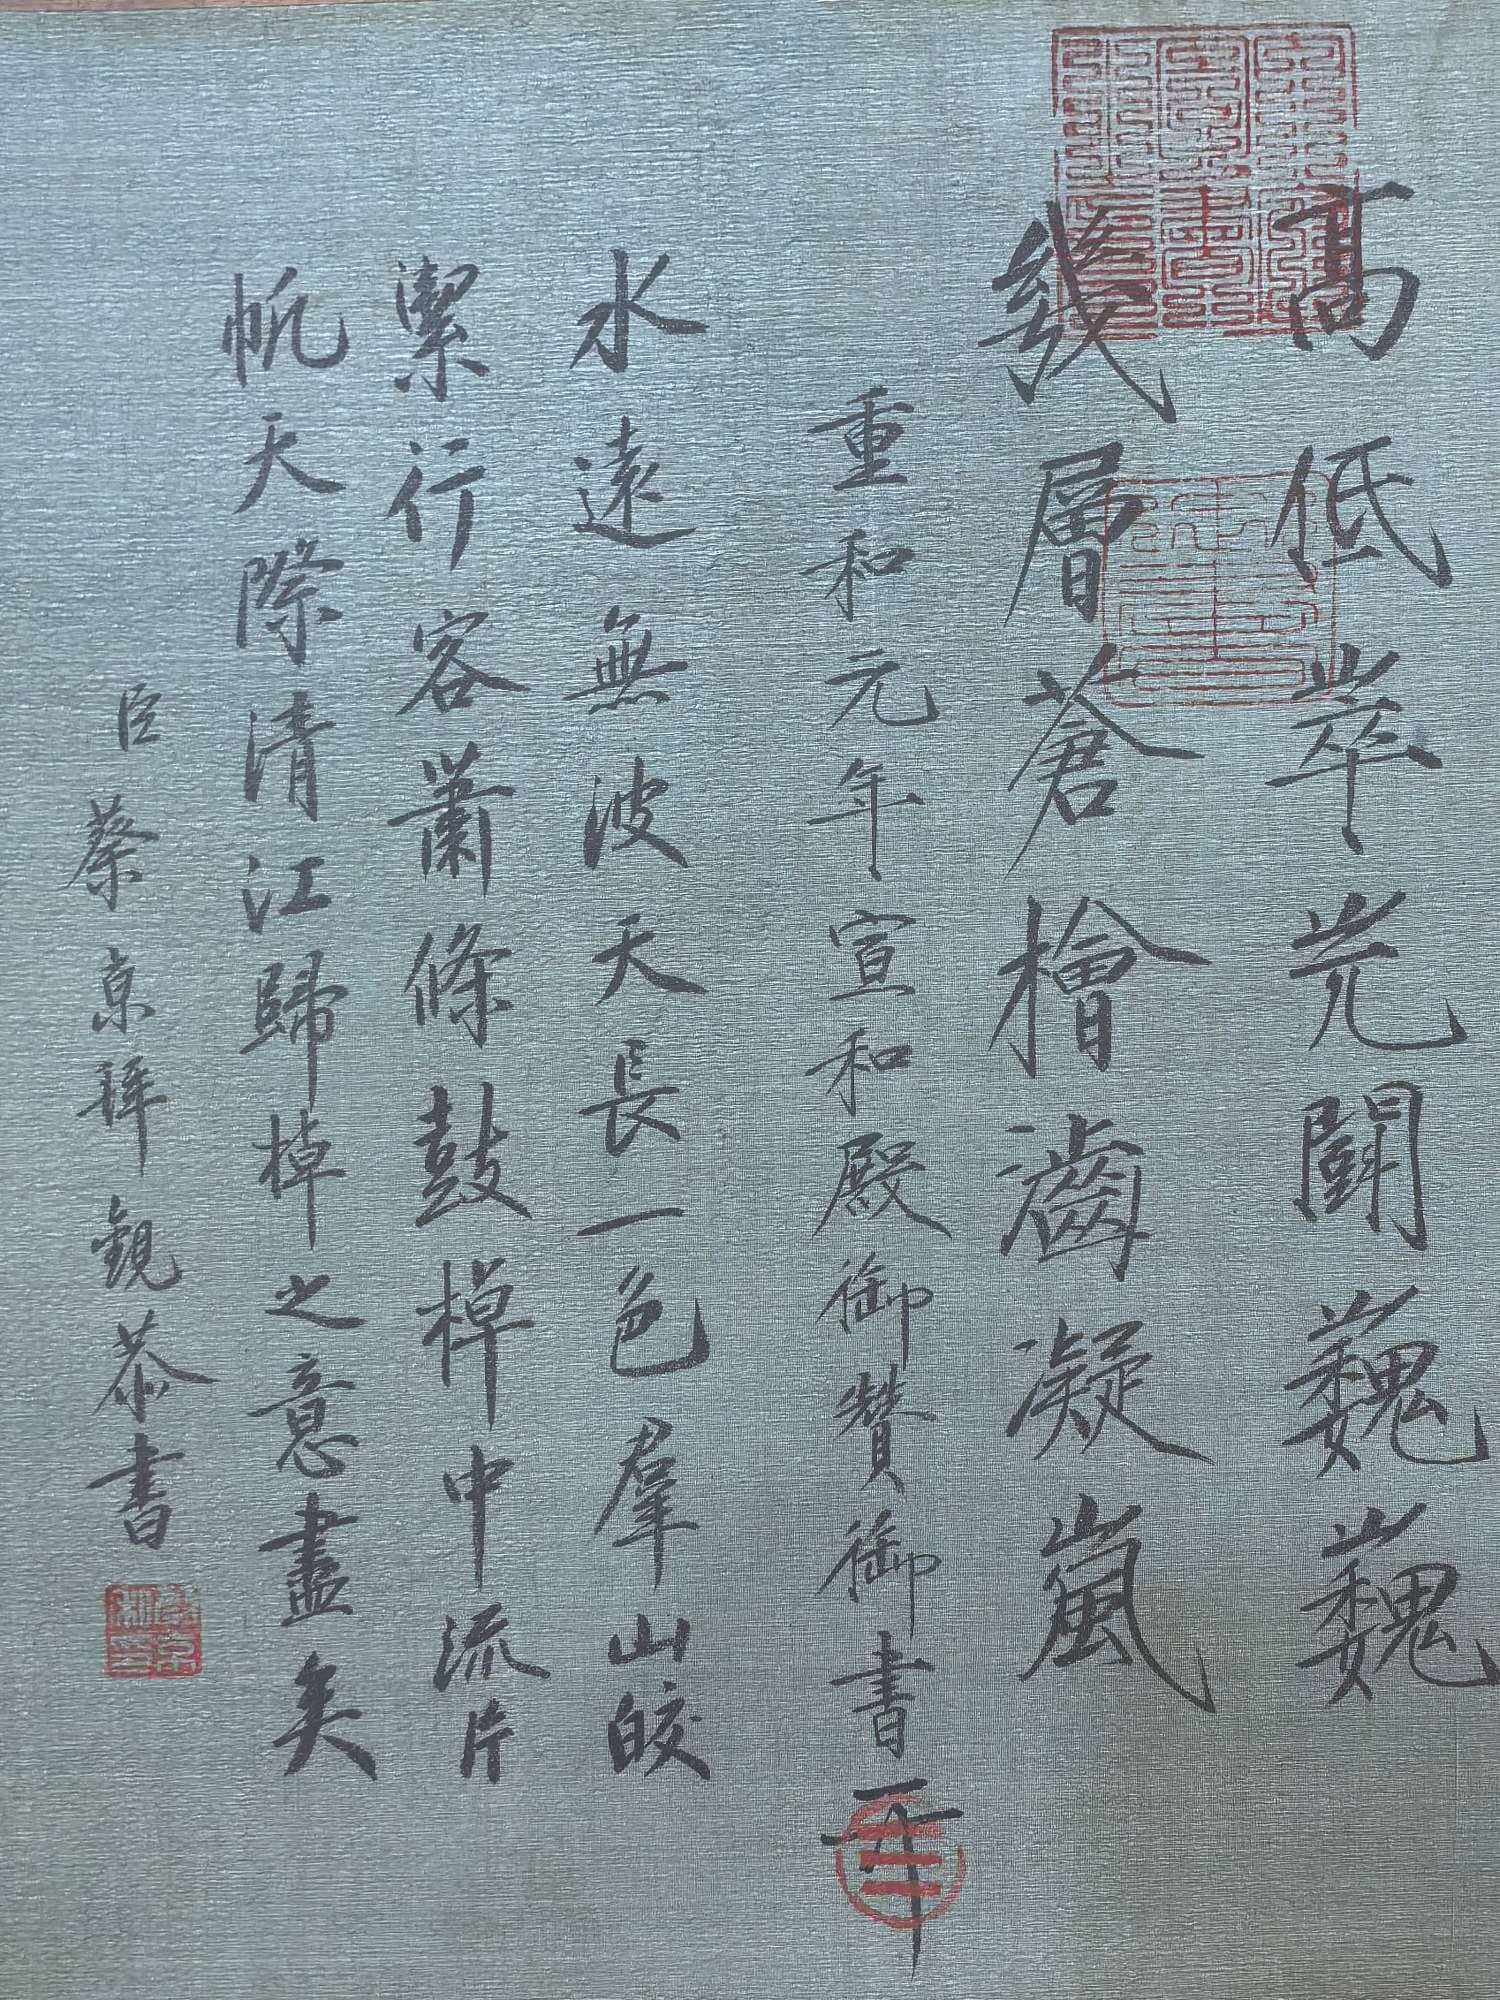 高低崒岏闘巍巍
幾層蒼檜齒凝嵐
重和元年宣和殿御贊御書
水遠無波天長一色羣山皎
潔行客蕭條鼓棹中流片
帆天際清江歸棹之意盡矣
臣蔡京拜觀恭書